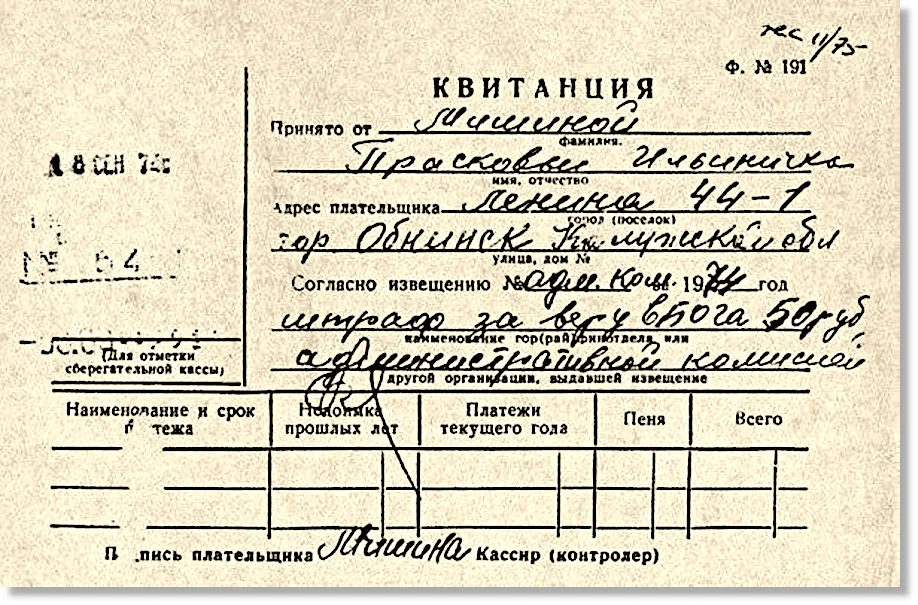 11/75
Ф. № 191
КВИТАНЦИЯ
Принято от Мишиной
фамилия.
Прасковьи Ильиничны
имя, отчество
Адрес плательщика Ленина 44-1
город (поселок)
гор Обнинск Калужской обл
улица, дом №
Согласно извещению № адм. ком. за 1974 год
штраф за веру в Бога 50 руб
наименование гор(рай)финотдела или
административной комиссией
другой организации, выдавшей извещение
18 СЕН 74
№ 64
(Для отметки
сберегательной кассы)
Наименование и срок
Недоимка
прошлых лет
Платежи
текущего года
Пеня
Всего
плательщика Мишина Кассир (контролер)